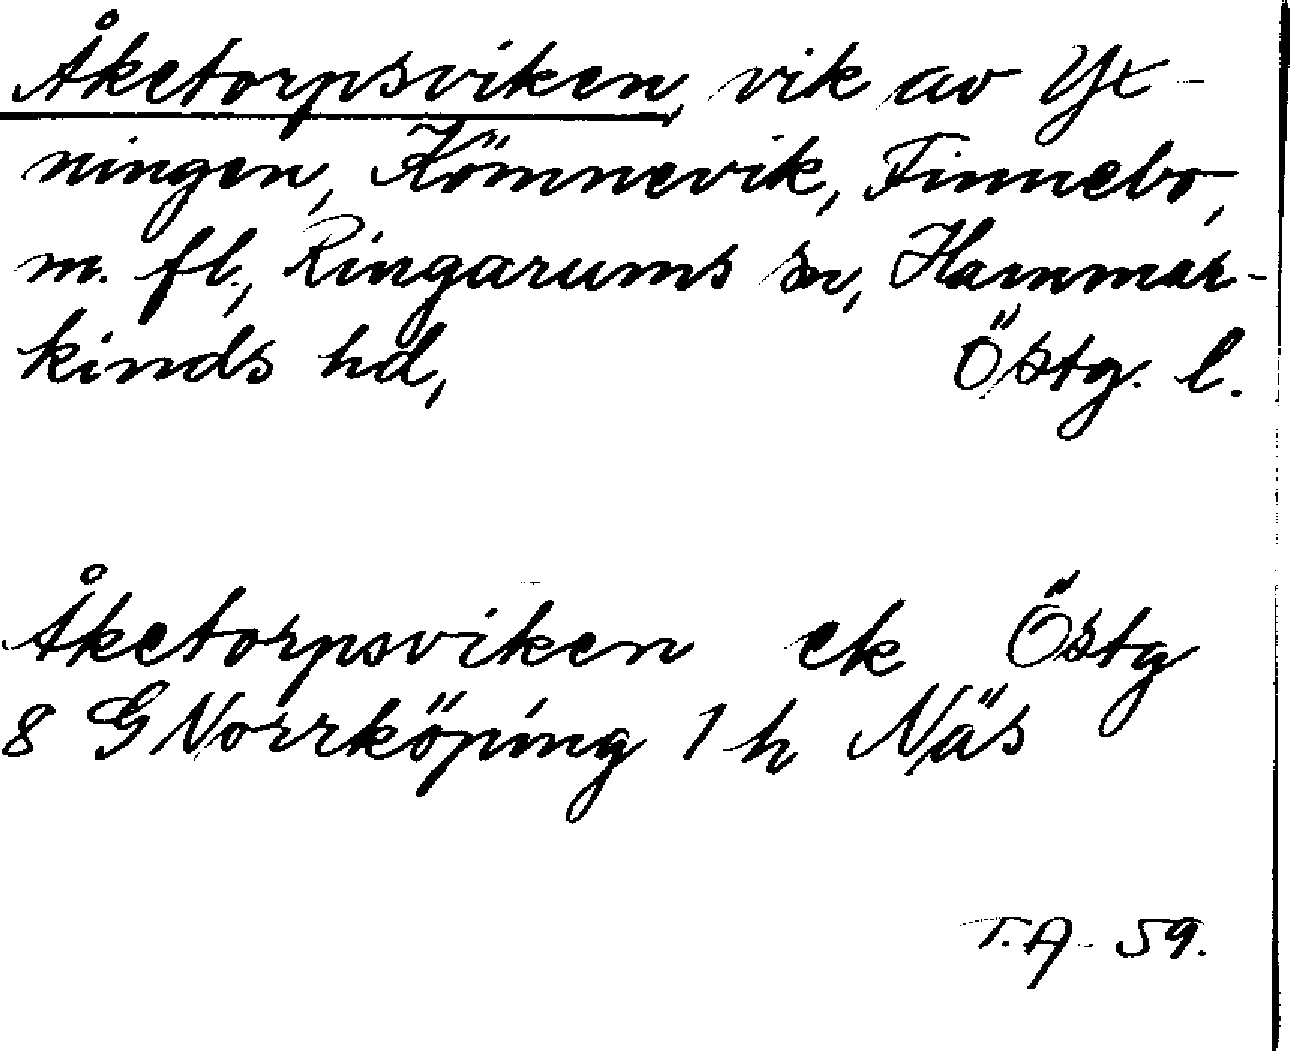 Åketorpsviken, vik av Yx-
ningen, Kömnevik, Finnebo,
m. fl., Ringarums sn, Hammar-
kinds hd, Östg. l.
Åketorpsviken ek Östg
8 G Norrköping 1 h Näs
T.A. 59.